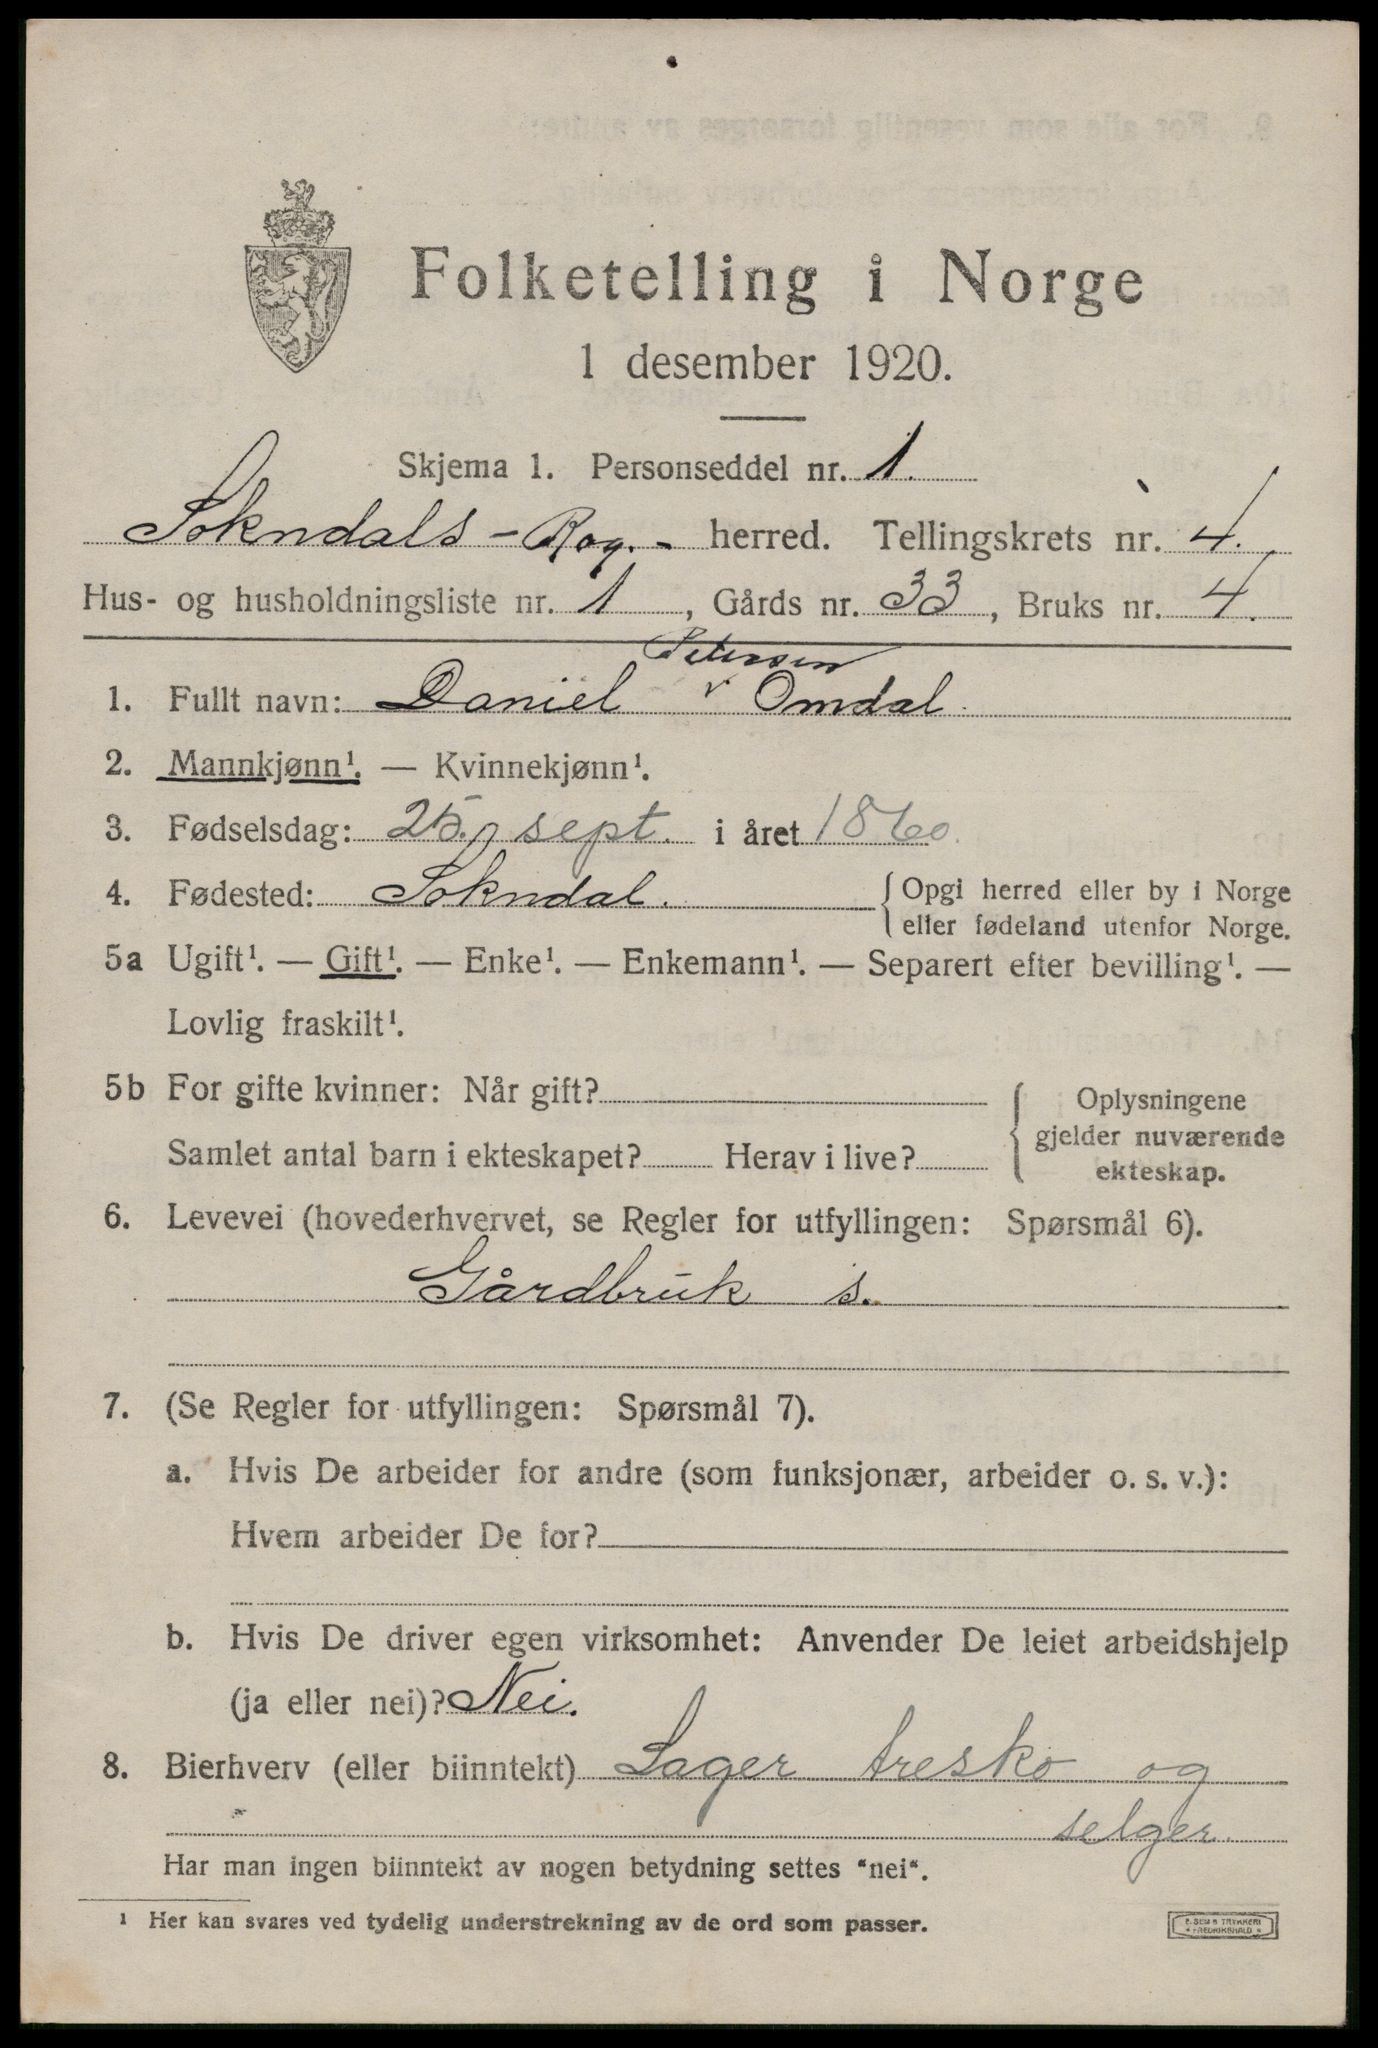 Folketelling i Norge
1 desember 1920.
Skjema 1. Personseddel nr. 1.
Sokndals - Rog. - herred. Tellingskrets nr. 4.
Hus- og husholdningsliste nr. 1, Gårds nr. 33, Bruks nr. 4.
Petersen
1. Fullt navn: Daniel v Omdal.
2. Mannkjønn¹. — Kvinnekjønn¹.
3. Fødselsdag: 25. sept. i året 1860.
4. Fødested: Sokndal. { Opgi herred eller by i Norge
eller fødeland utenfor Norge.
5a Ugift¹. — Gift¹. — Enke¹. — Enkemann¹. — Separert efter bevilling¹. —
Lovlig fraskilt¹.
5b For gifte kvinner: Når gift?
Samlet antal barn i ekteskapet? Herav i live?
{ Oplysningene
gjelder nuværende
ekteskap.
6. Levevei (hovederhvervet, se Regler for utfyllingen: Spørsmål 6).
Gårdbruk s.
7. (Se Regler for utfyllingen: Spørsmål 7).
a. Hvis De arbeider for andre (som funksjonær, arbeider o. s. v.):
Hvem arbeider De for?
b. Hvis De driver egen virksomhet: Anvender De leiet arbeidshjelp
(ja eller nei)? Nei.
8. Bierhverv (eller biinntekt) Lager tresko og
selger.
Har man ingen biinntekt av nogen betydning settes "nei".
¹ Her kan svares ved tydelig understrekning av de ord som passer.
E. SEM'S TRYKKERI
FREDRIKSHALD